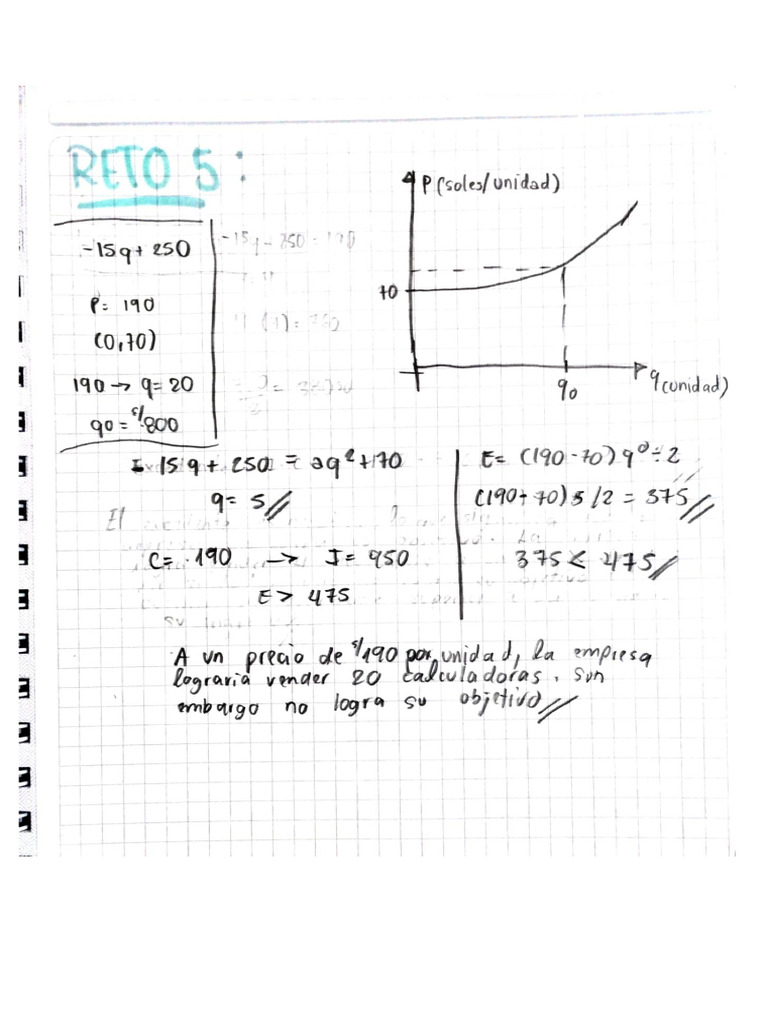 RETO 5:
-15q + 250
P= 190
(0,70)
190 → q= 20
q0 = s/800
P (soles/unidad)
70
q0
q (unidad)
- 15 q + 250 = aq² + 70
q= 5 //
C= 190 → I= 950
E > 475
E= (190-70) q0 ÷ 2
(190+70) 5 /2 = 375 //
375 < 475 //
A un precio de s/190 por unidad, la empresa
lograria vender 20 calculadoras, sin
embargo no logra su objetivo //